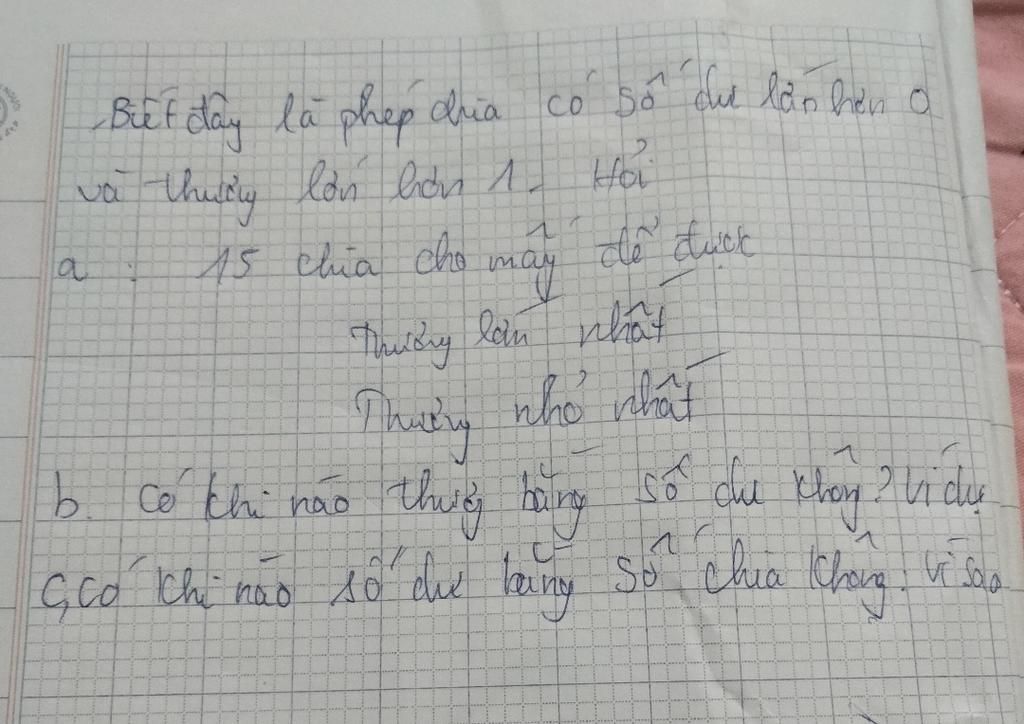 Biết đây là phép chia có số dư lớn hơn 0
và thương lớn hơn 1. Hỏi
a : 15 chia cho mấy để được
Thương lớn nhất
Thương nhỏ nhất
b. Có khi nào thương bằng số dư không? Ví dụ
c, Có khi nào số dư bằng số chia không. Vì sao